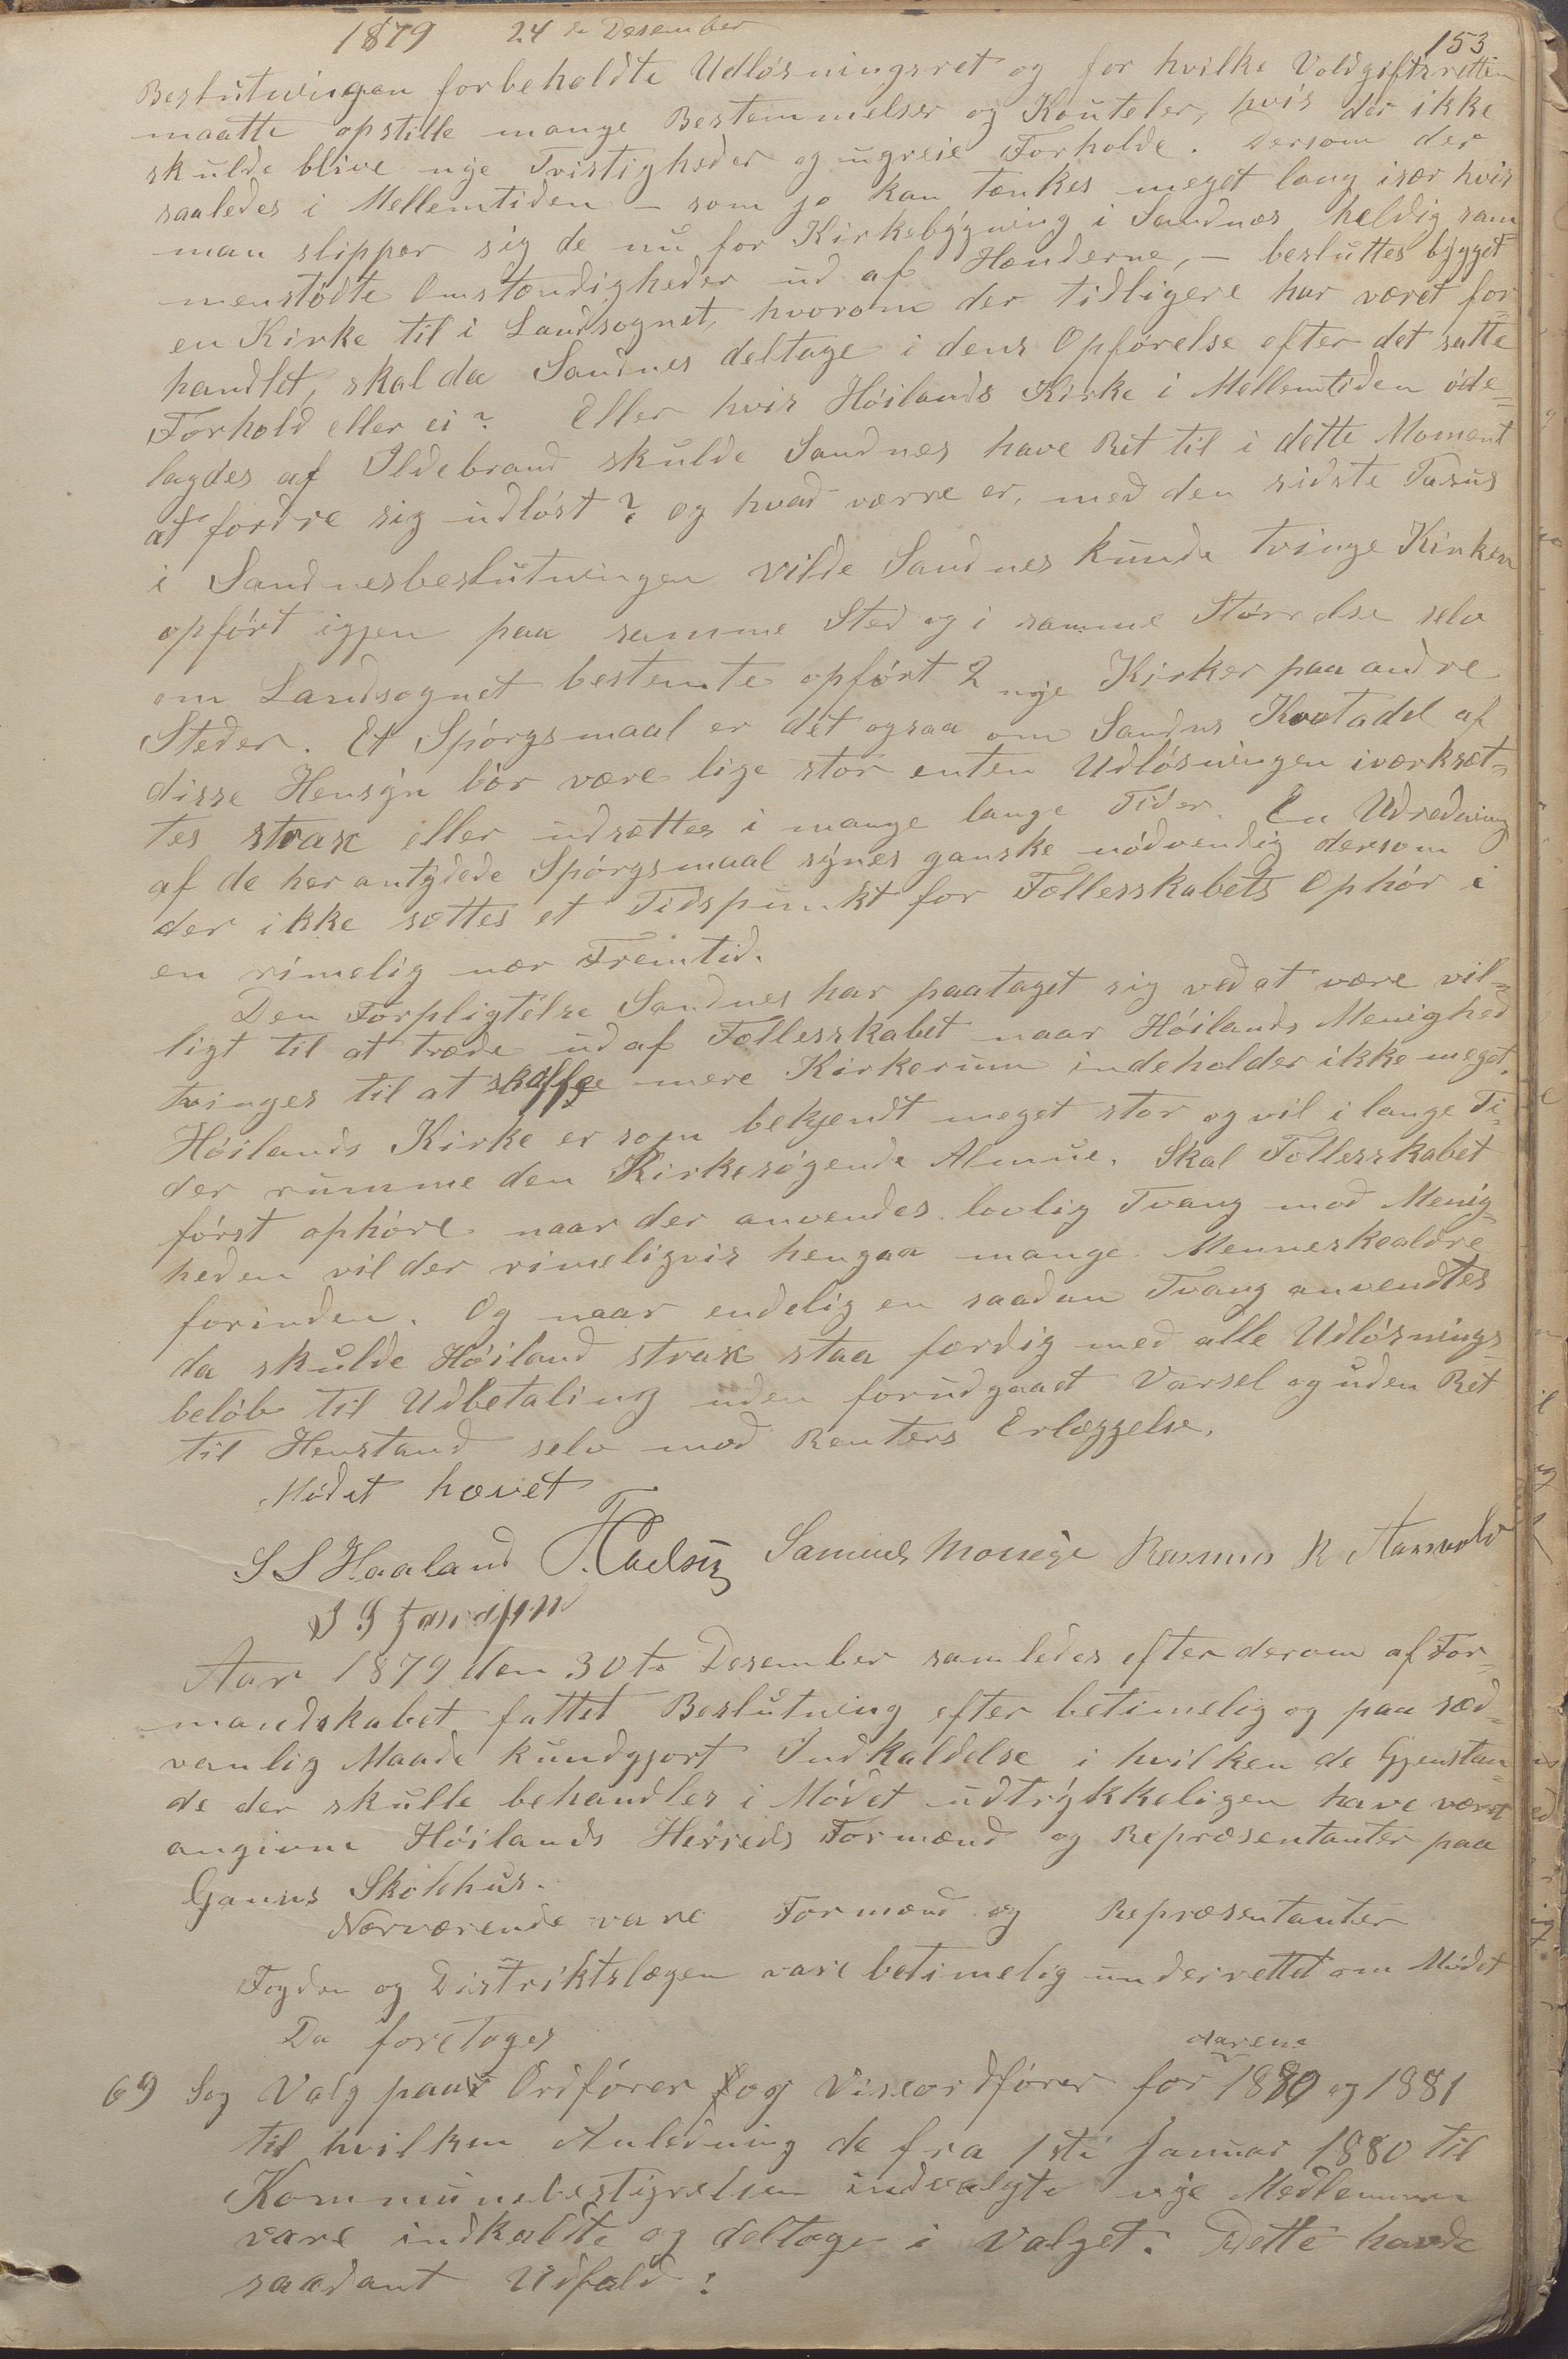 1879 24de Desember 153
Beslutningen forbeholdte Udløsningsret og for hvilke Voldgiftsretten
maatte opstille mange Bestemmelser og Kouteler, hvis der ikke
skulde blive nye Tvistigheder og ugreie Forholde. Dersom der
saaledes i Mellemtiden – som jo kan tænkes meget lang især hvis
man slipper sig de nu for Kirkebygning i Sandnæs heldig sam-
menstødte Omstændigheder ud af Hænderne, – besluttes bygget
en Kirke til i Landsognet, hvorom der tidligere har været for-
handlet, skal da Sandnes deltage i dens Opførelse efter det satte
Forhold eller ei? Eller hvis Høilands Kirke i Mellemtiden øde-
lagdes af Ildebrand skulde Sandnes have Ret til i dette Moment
at fordre sig udløst? og hvad værre er, med den sidste Pasus
i Sandnesbeslutningen vilde Sandnes kunde tvinge Kirken
opført igjen paa samme Sted og i samme Størrelse selv
om Landsognet bestemte opført 2 nye Kirker paa andre
Steder. Et Spørgsmaal er det ogsaa om Sandns Kvotadel af
disse Hensyn bør være lige stor enten Udløsningen iværksæt-
tes strax eller udsættes i mange lange Tider. En Udredning
af de her antydede Spørgsmaal synes ganske nødvendig dersom
der ikke sættes et Tidspunkt for Fællesskabets Ophør i
en rimelig nær Fremtid.
Den Forpligtelse Sandnes har paataget sig ved at være vil-
ligt til at træde ud af Fællesskabet naar Høilands Menighed
tvinges til at skaffe mere Kirkerum indeholder ikke meget.
Høilands Kirke er som bekjendt meget stor og vil i lange Ti-
der rumme den Kirkesøgende Almue. Skal Fællesskabet
først ophøre naar der anvendes lovlig Tvang mod Menig-
heden vil der rimeligvis hengaa mange Menneskealdre
forinden. Og naar endelig en saadan Tvang anvendtes
da skulde Høiland strax staa færdig med alle Udløsnings-
beløb til Udbetaling uden forudgaaet Varsel og uden Ret
til Henstand selv mod Renters Erlæggelse.
Mødet hævet
S S Haaland Samuel Rasmus R
Aar 1879 den 30te Desember samledes efter derom af For-
mandskabet fattet Beslutning efter betimelig og paa sæd-
vanlig Maade kundgjort Indkaldelse i hvilken de Gjenstan-
de der skulle behandles i Mødet udtrykkeligen have været
angivne Høilands Herreds Formænd og Repræsentanter paa
Ganns Skolehus.
Nærværende vare Formænd og Repræsentanter
Fogden og Distriktslægen vare betimelig underrettet om Mødet
Da foretoges
Aarene
69 Sag Valg paa Ordfører og Viseordfører for 1880 og 1881
til hvilken Anledning de fra 1ste Januar 1880 til
Kommunebestyrelsen indvalgte nye Medlemmer
vare indkaldte og deltoge i Valget. Dette havde
saadant Udfald: